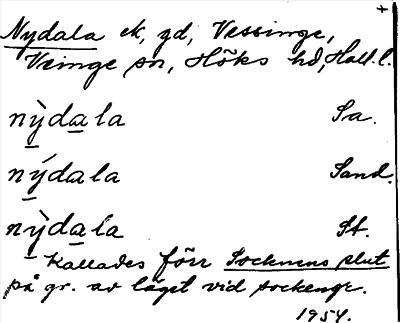 +
Nydala ek, gd, Vessinge,
Veinge sn, Höks hd, Hall.l.
nỳdala Sa.
nýdala Sand.
nỳdala St.
Kallades förr Socknens slut
på gr. av läget vid sockengr.
1954.